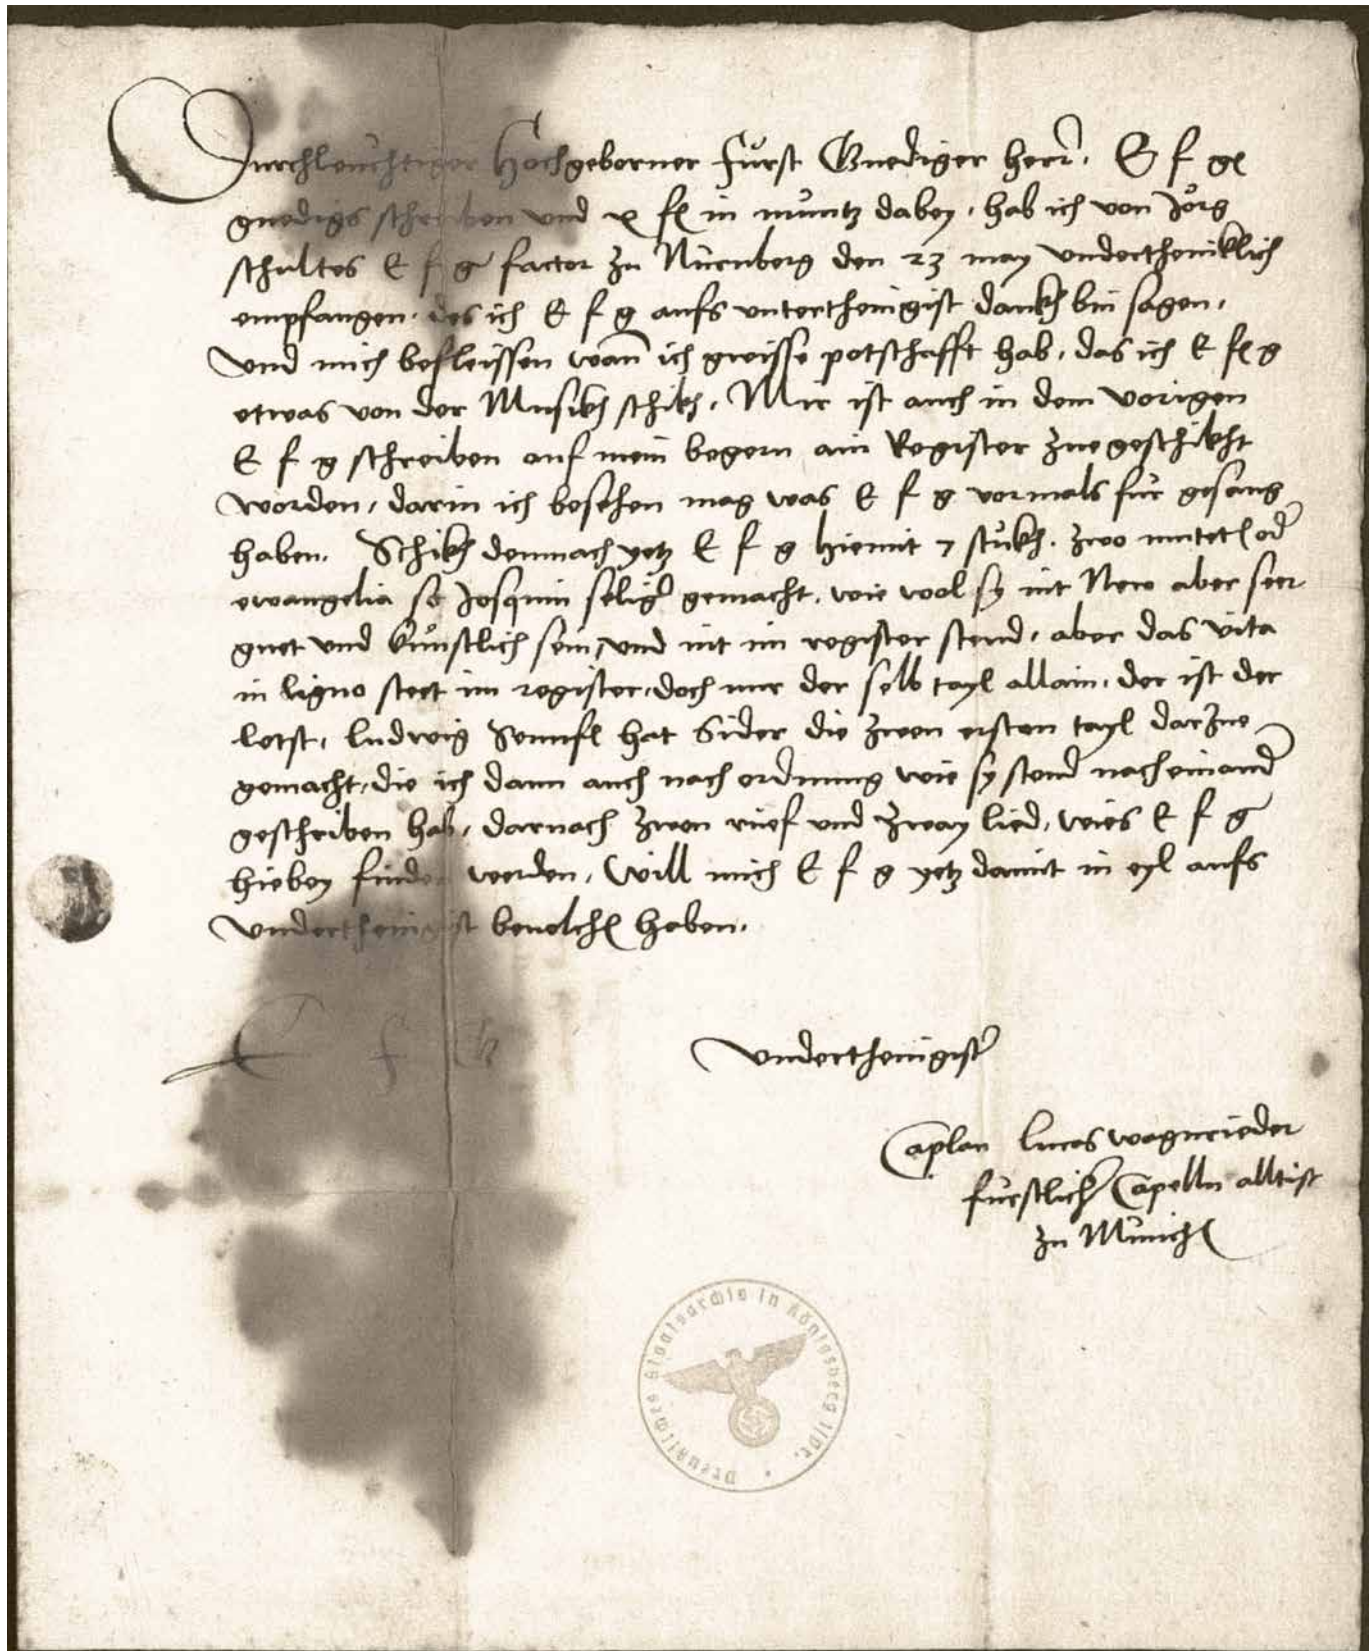 Durchleuchtiger Hochgeborner Fürst Gnediger herr. E f g
gnedigs schreiben und x fl in müntz dabey, hab ich von Jörg
schultes E f g factor zu Nürnberg den 23 may undertheniklich
empfangen. des ich E f g aufs untertheinigist dankh bin sagen,
Und mich befleissen wann ich gwisse potschafft hab, das ich E f g
etwas von der Musikh schikh. Mir ist auch in dem vorigen
E f g schreiben auf mein begern ain Register zuegeschikht
worden, darin ich besehen mag was E f g vormals für gesang
haben. Schikh demnach yetz E f g hiemit 7 stükh. zwo mutetn oder
ewangelia so Josquin seliger gemacht, wie wol sy nit New aber seer
guet und künstlich sein, und nit im register stend, aber das vita
in ligno steet im register, doch nur der selb tayl allain, der ist der
letst, ludwig Sennfl hat Sider die zwen ersten tayl darzue
gemacht, die ich dann auch nach ordnung wie sy stend nacheinander
geschriben hab, darnach zwen ruef und zway lied, wies E f g
hiebey finden werden, Will mich E f g yetz damit in eyl aufs
Undertheinigist bevolchen haben.
E f g
Undertheinigister
Caplan lucas wagnrieder
fürstlicher Capelln alltist
zu Münichen
Preußisches Staatsarchiv in Königsberg